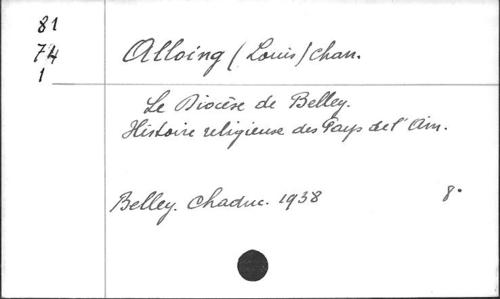 81
74
1
Alloing (Louis) chan.
Le Diocèse de Belley.
Histoire religieuse des Pays de l'Ain.
Belley. Chaduc. 1938 8°